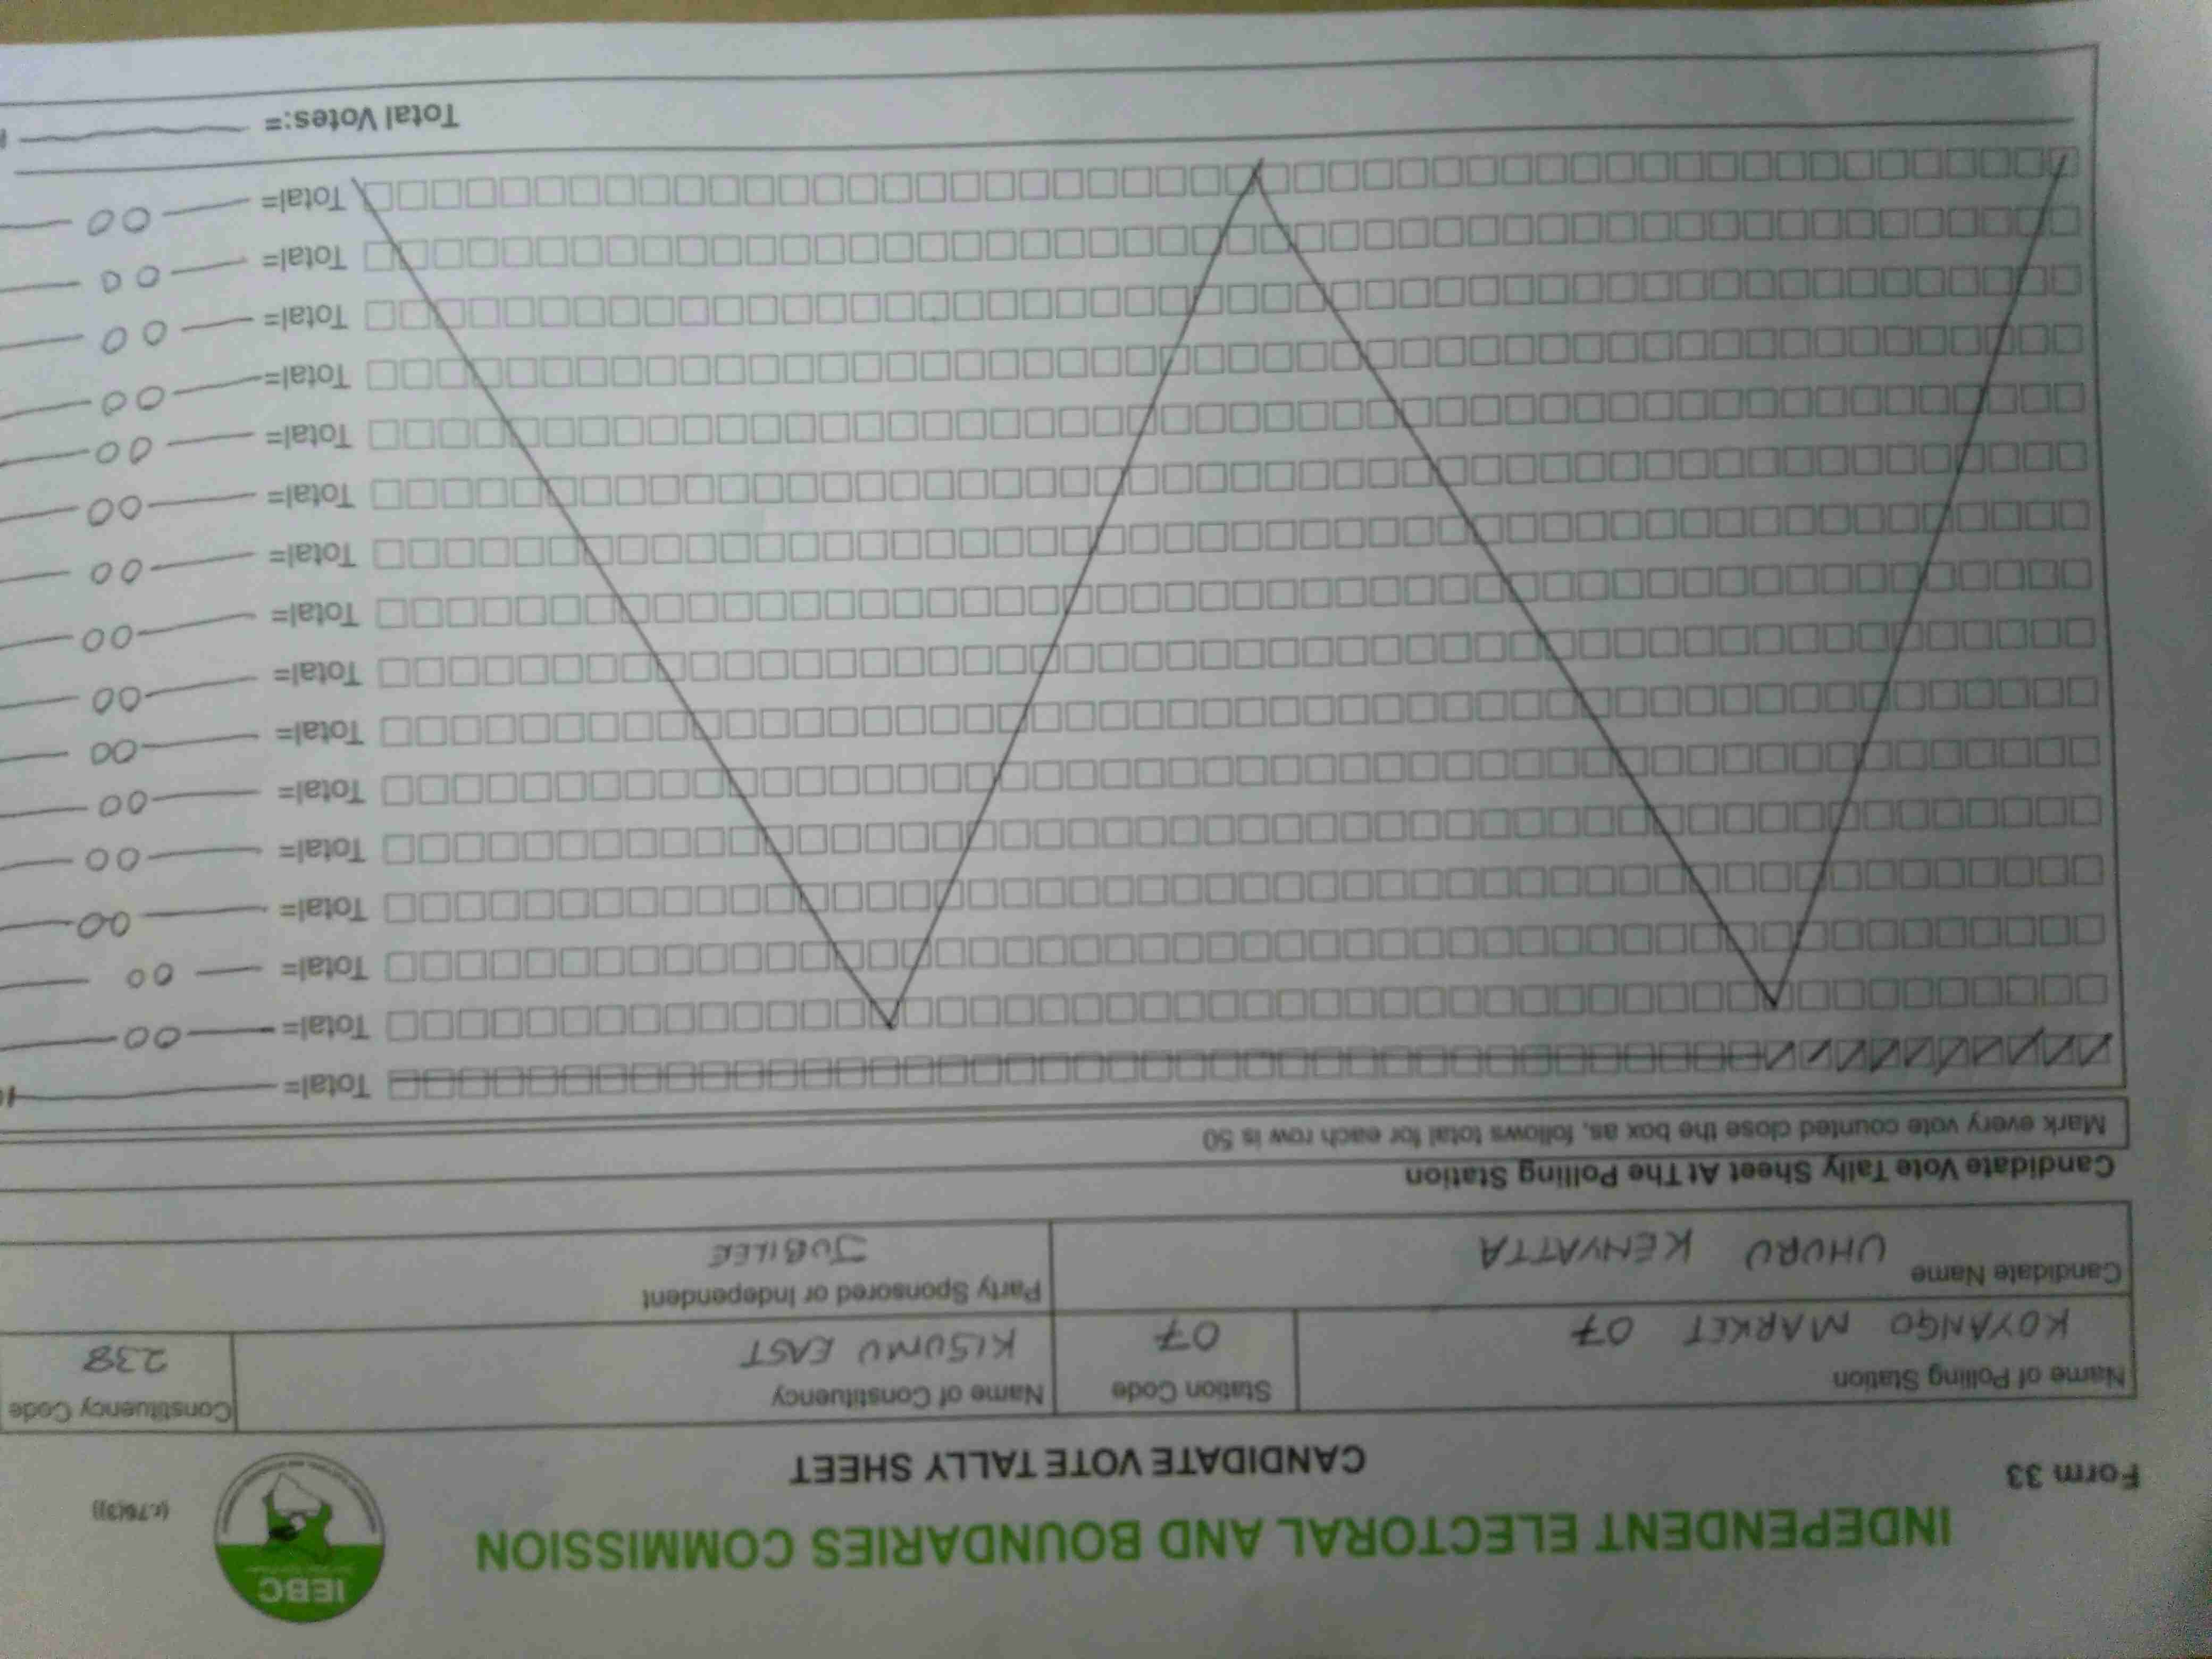 INDEPENDENT ELECTORAL AND BOUNDARIES COMMISSION
IEBC
Form 33
CANDIDATE VOTE TALLY SHEET
(r.76(3))
Name of Polling Station
KOYANGO MARKET 07
Station Code
07
Name of Constituency
KISUMU EAST
Constituency Code
238
Candidate Name
UHURU KENYATTA
Party Sponsored or Independent
JUBILEE
Candidate Vote Tally Sheet At The Polling Station
Mark every vote counted close the box as, follows total for each row is 50
Total=
Total= 00
Total= 00
Total= 00
Total= 00
Total= 00
Total= 00
Total= 00
Total= 00
Total= 00
Total= 00
Total= 00
Total= 00
Total= 00
Total= 00
Total= 00
Total Votes:=